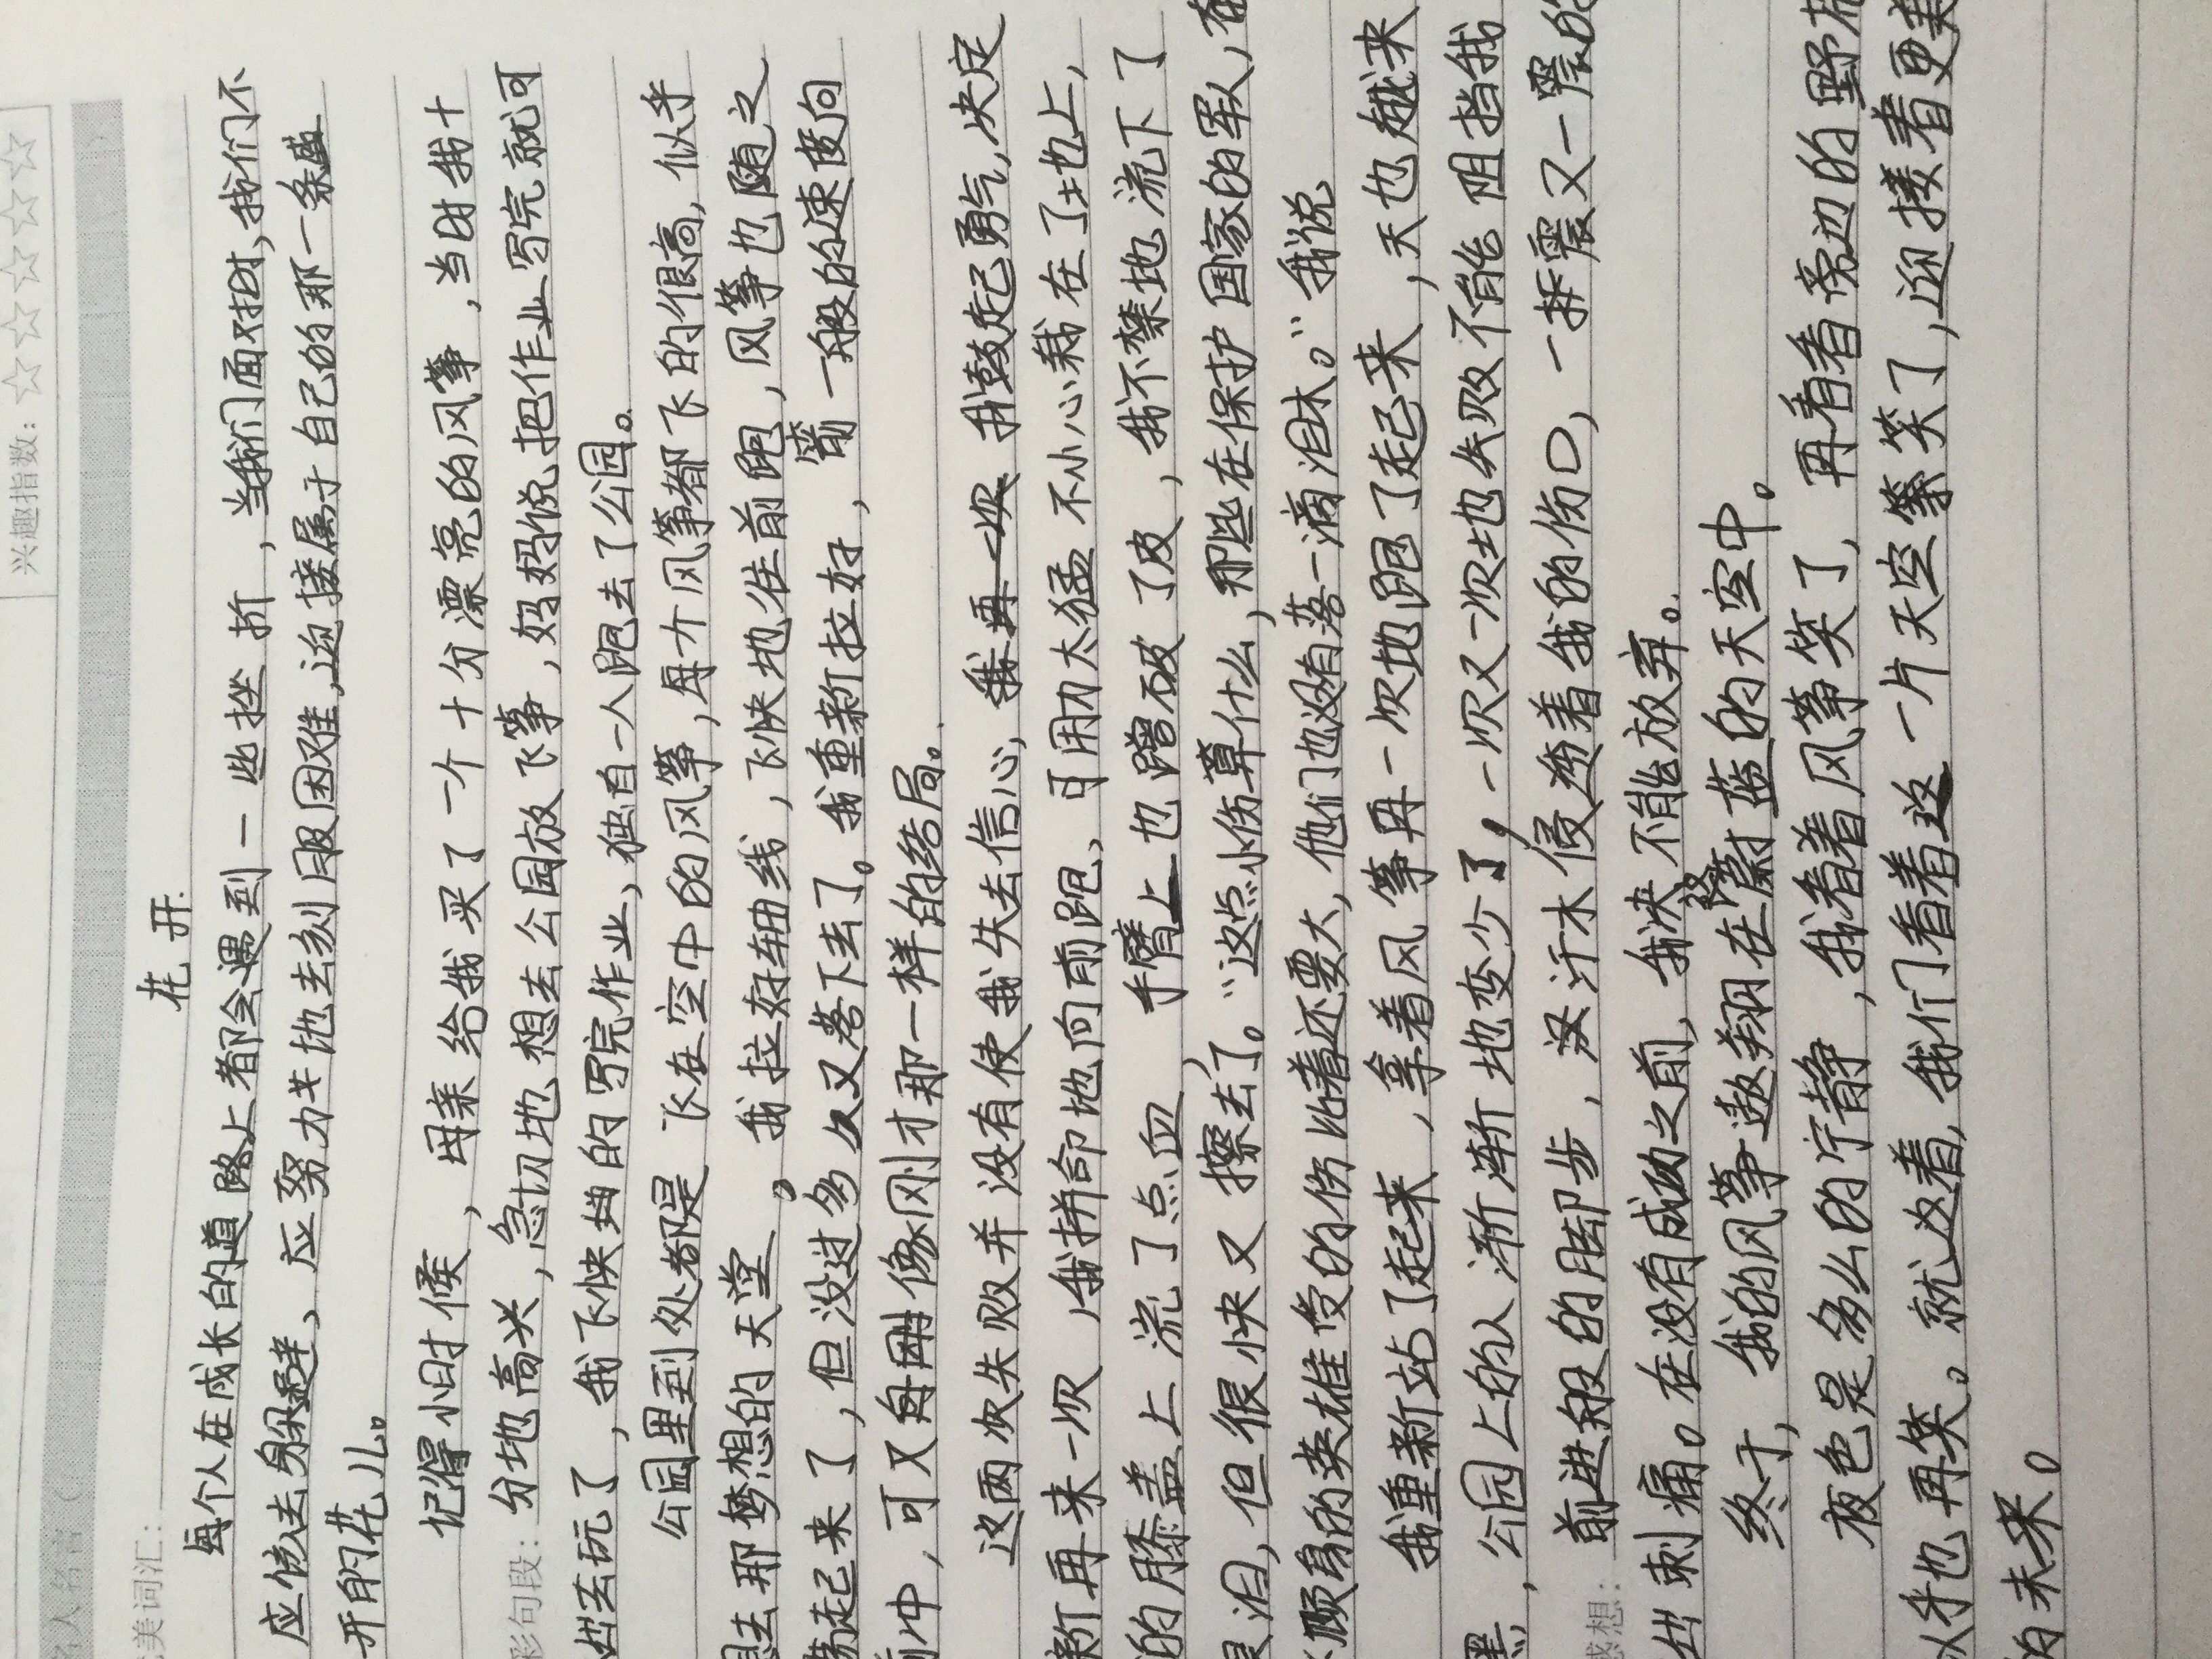 兴趣指数：☆☆☆☆☆
名人名言（
美词汇：
花开
每个人在成长的道路上都会遇到一些挫折，当我们面对时，我们不
应该去躲避、应努力地去刻服困难，迎接属于自己的那一条盛
开的花儿。
记得小时候，母亲给我买了一个十分漂亮的风筝，当时我十
彩句段：
分地高兴，急切地想去公园放飞筝，妈妈说把作业写完就可
出去玩了，我飞快地的写完作业，独自一人跑去了公园。
公园里到处都是飞在空中的风筝，每个风筝都飞的很高，似乎
想去那梦想的天堂。我拉好细线，飞快地往前跑，风筝也随之
荡起来了，但没过多久又落下去了。我重新拉好，箭一般的速度向
前冲，可又像刚才那一样的结局。
这两次失败并没有使我失去信心，我鼓起勇气，决定
新再来一次，我拼命地向前跑、可用力太猛不小心栽在了地上，
的膝盖上流了点血，手臂上也蹭破了皮，我不禁地流下了
泪，但很快又擦去了。“这点小伤算什么，那些在保护国家的军人，奋
不顾身的英雄受的伤比着还要大，他们也没有落一滴泪木。”我说
我重新站了起来，拿着风筝再一次地跑了起来，天也越来
黑，公园上的人渐渐地变少了，一次又一次地失败不能阻挡我
感想：
前进般的脚步，汗水侵透着我的伤口，一阵震又一震的
出刺痛。在没有成功之前，我决不能放弃。
终于，我的风筝遨翔在蔚蓝的天空中。
夜色是多么的宁静，我看着风筝笑了，再看看旁边的野花
似乎也再笑。就这着，我们看着这一片天空笑了，迎接着更美
的未来。